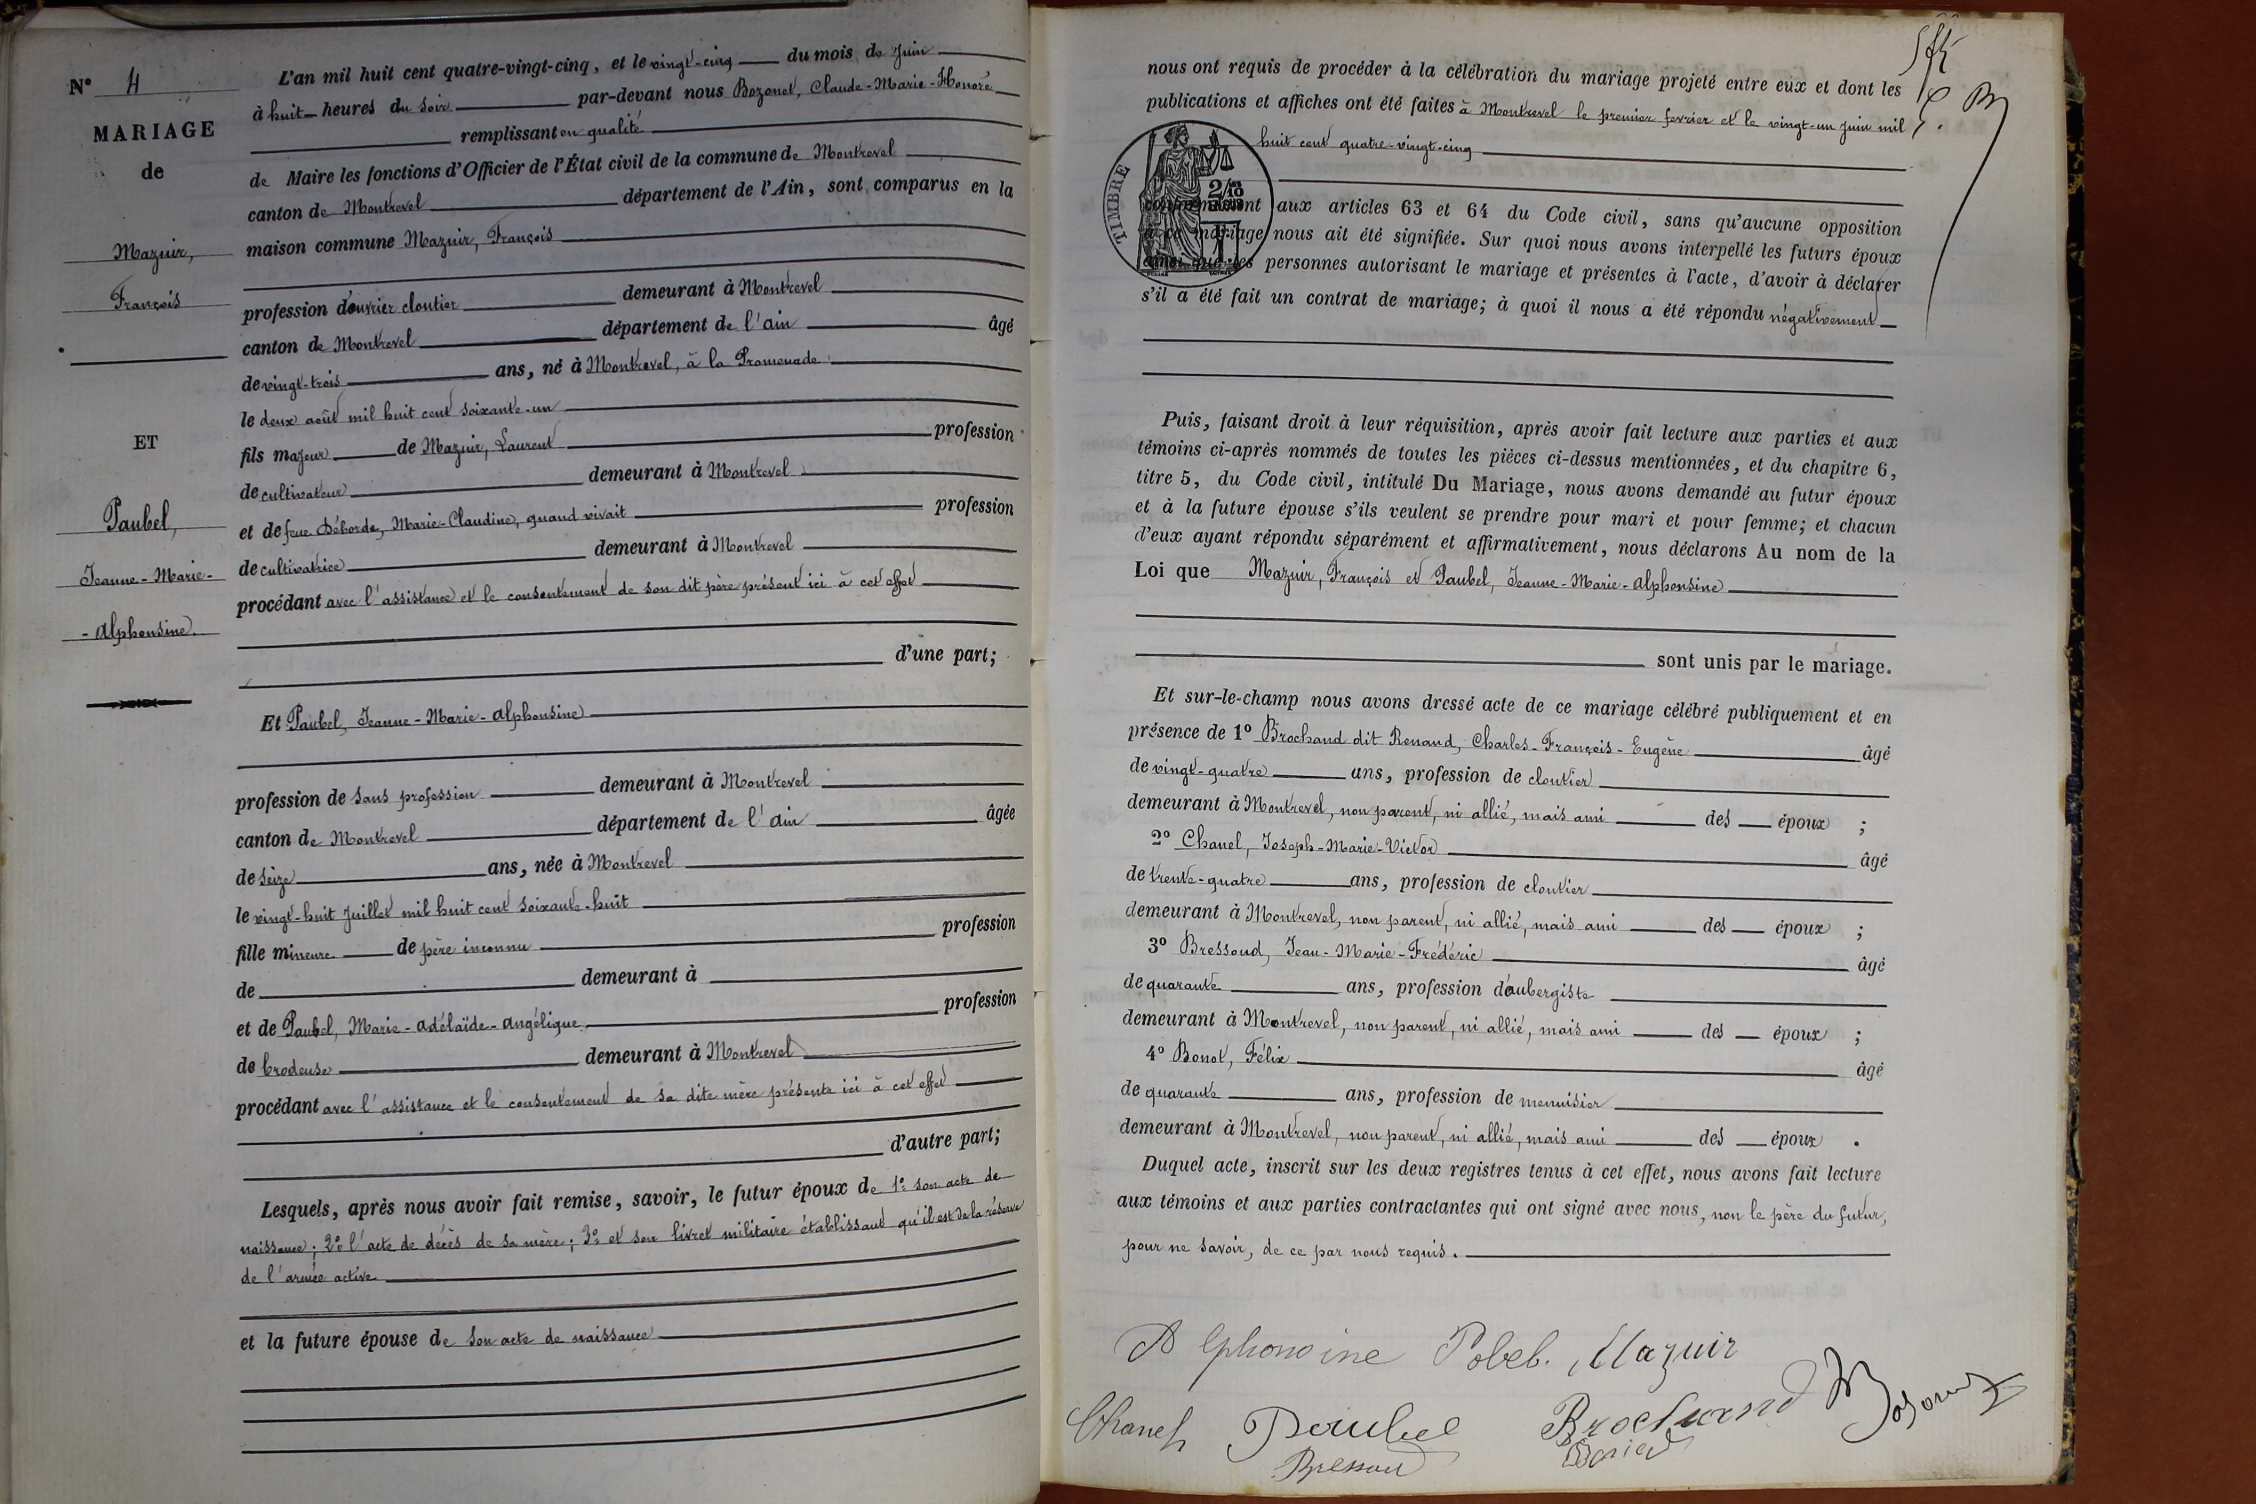 N° 4
MARIAGE
de
Mazuir,
François
ET
Paubel,
Jeanne-Marie-
-Alphonsine.
L'an mil huit cent quatre-vingt-cinq, et le vingt-cinq du mois de Juin
à huit heures du soir par-devant nous Bozonet, Claude-Marie-Honoré
remplissant en qualité
de Maire les fonctions d'Officier de l'État civil de la commune de Montrevel
canton de Montrevel département de l'Ain, sont comparus en la
maison commune Mazuir, François
profession d'ouvrier cloutier demeurant à Montrevel
canton de Montrevel département de l'ain âgé
de vingt-trois ans, né à Montrevel, à la Promenade
le deux août mil huit cent soixante-un
fils majeur de Mazuir, Laurent profession
de cultivateur demeurant à Montrevel
et de feue Déborde, Marie-Claudine, quand vivait profession
de cultivatrice demeurant à Montrevel
procédant avec l'assistance et le consentement de son dit père présent ici à cet effet
d'une part;
Et Paubel, Jeanne-Marie-Alphonsine
profession de sans profession demeurant à Montrevel
canton de Montrevel département de l'ain âgée
de seize ans, née à Montrevel
le vingt-huit Juillet mil huit cent soixante-huit
fille mineure de père inconnu profession
de demeurant à
et de Paubel, Marie-Adélaïde-Angélique profession
de brodeuse demeurant à Montrevel
procédant avec l'assistance et le consentement de sa dite mère présente ici à cet effet
d'autre part;
Lesquels, après nous avoir fait remise, savoir, le futur époux de 1° son acte de
naissance; 2° l'acte de décès de sa mère; 3° et son livret militaire établissant qu'il est de la réserve
de l'armée active
et la future épouse de son acte de naissance
nous ont requis de procéder à la célébration du mariage projeté entre eux et dont les
publications et affiches ont été faites à Montrevel le premier fevrier et le vingt-un Juin mil
huit cent quatre-vingt-cinq
TIMBRE
2/10
conformément aux articles 63 et 64 du Code civil, sans qu'aucune opposition
à ce mariage nous ait été signifiée. Sur quoi nous avons interpellé les futurs époux
ainsi que les personnes autorisant le mariage et présentes à l'acte, d'avoir à déclarer
s'il a été fait un contrat de mariage; à quoi il nous a été répondu négativement
Puis, faisant droit à leur réquisition, après avoir fait lecture aux parties et aux
témoins ci-après nommés de toutes les pièces ci-dessus mentionnées, et du chapitre 6,
titre 5, du Code civil, intitulé Du Mariage, nous avons demandé au futur époux
et à la future épouse s'ils veulent se prendre pour mari et pour femme; et chacun
d'eux ayant répondu séparément et affirmativement, nous déclarons Au nom de la
Loi que Mazuir, François et Paubel, Jeanne-Marie-Alphonsine
sont unis par le mariage.
Et sur-le-champ nous avons dressé acte de ce mariage célébré publiquement et en
présence de 1° Brochand dit Renaud, Charles-François-Eugène âgé
de vingt-quatre ans, profession de cloutier
demeurant à Montrevel, non parent, ni allié, mais ami des époux ;
2° Chanel, Joseph-Marie-Victor âgé
de trente-quatre ans, profession de cloutier
demeurant à Montrevel, non parent, ni allié, mais ami des époux ;
3° Bressoud, Jean-Marie-Frédéric âgé
de quarante ans, profession d'aubergiste
demeurant à Montrevel, non parent, ni allié, mais ami des époux ;
4° Bonot, Félix âgé
de quarante ans, profession de menuisier
demeurant à Montrevel, non parent, ni allié, mais ami des époux .
Duquel acte, inscrit sur les deux registres tenus à cet effet, nous avons fait lecture
aux témoins et aux parties contractantes qui ont signé avec nous, non le père du futur,
pour ne savoir, de ce par nous requis.
Alphonsine Pobel. Mazuir
Chanel Paubel Brochand
Bressoud